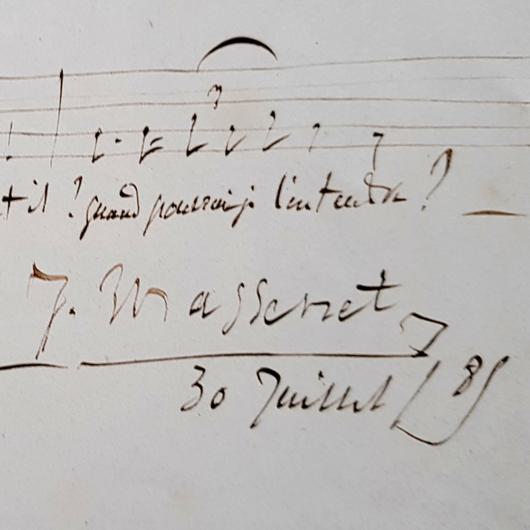 t il ? quand pourrai-je l'entendre ?
J. Massenet
30 Juillet / 85